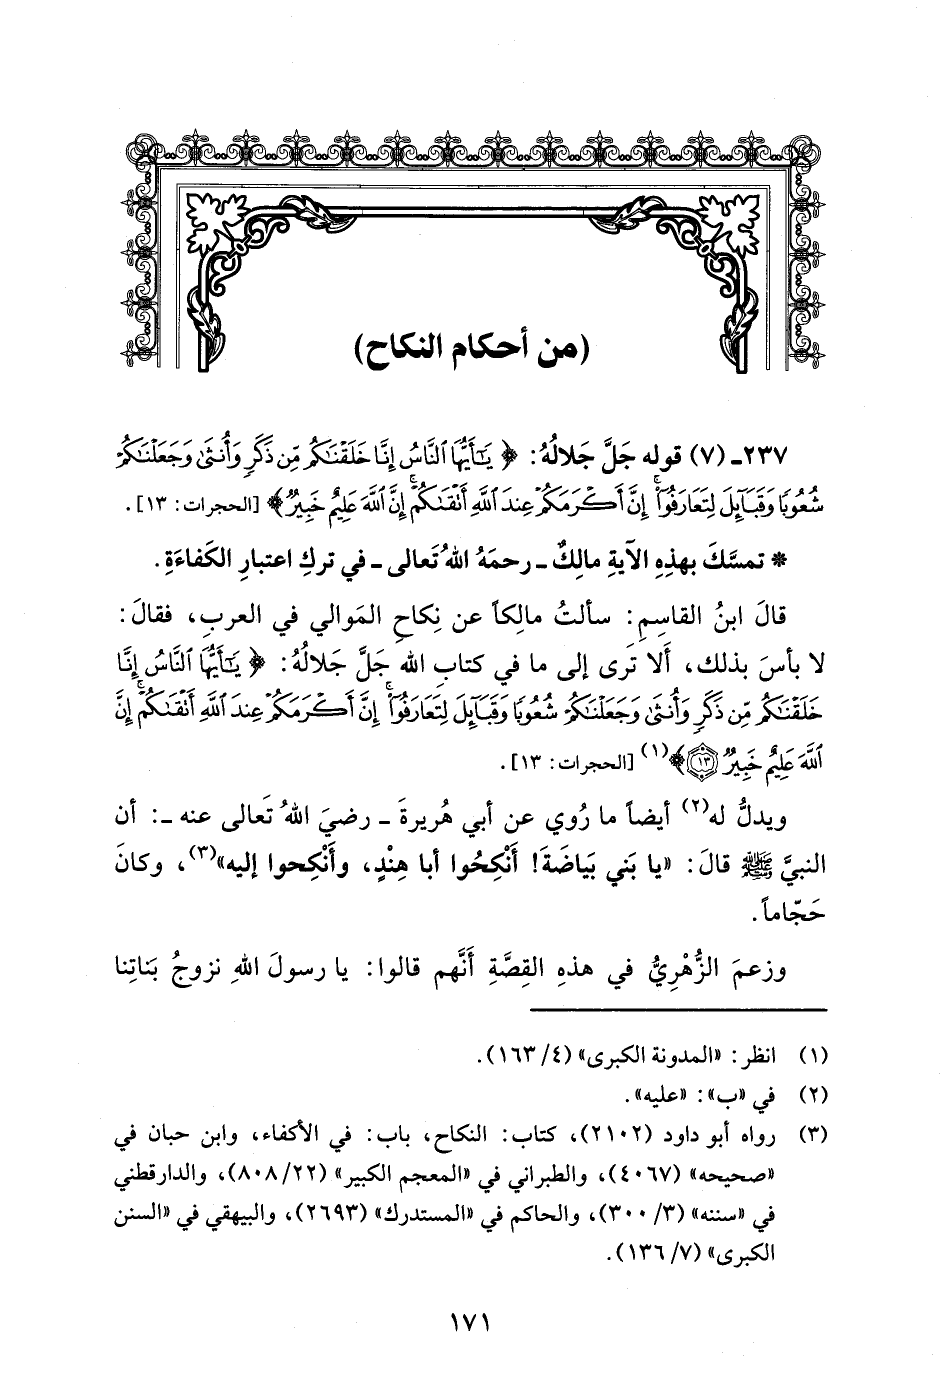 (من أحكام النكاح)
٢٣٧ـ (٧) قوله جَلَّ جَلالُهُ: ﴿يَٰٓأَيُّهَا ٱلنَّاسُ إِنَّا خَلَقْنَٰكُم مِّن ذَكَرٍ وَأُنثَىٰ وَجَعَلْنَٰكُمْ
شُعُوبًا وَقَبَآئِلَ لِتَعَارَفُوٓا۟ ۚ إِنَّ أَكْرَمَكُمْ عِندَ ٱللَّهِ أَتْقَىٰكُمْ ۚ إِنَّ ٱللَّهَ عَلِيمٌ خَبِيرٌ﴾ [الحجرات: ١٣].
* تمسَّكَ بهذِهِ الآيةِ مالِكٌ ـ رحمَهُ اللهُ تَعالى ـ في تركِ اعتبارِ الكَفاءَةِ.
قالَ ابنُ القاسِمِ: سألتُ مالِكاً عن نِكاحِ المَوالي في العربِ، فقالَ:
لا بأسَ بذلك، أَلا تَرى إلى ما في كتابِ الله جَلَّ جَلالُهُ: ﴿يَٰٓأَيُّهَا ٱلنَّاسُ إِنَّا
خَلَقْنَٰكُم مِّن ذَكَرٍ وَأُنثَىٰ وَجَعَلْنَٰكُمْ شُعُوبًا وَقَبَآئِلَ لِتَعَارَفُوٓا۟ ۚ إِنَّ أَكْرَمَكُمْ عِندَ ٱللَّهِ أَتْقَىٰكُمْ ۚ إِنَّ
ٱللَّهَ عَلِيمٌ خَبِيرٌ ١٣﴾(١) [الحجرات: ١٣].
ويدلُّ له(٢) أيضاً ما رُوي عن أبي هُريرةَ ـ رضيَ اللهُ تَعالى عنه ـ: أن
النبيَّ ﷺ قالَ: «يا بَني بَيَاضَةَ! أَنْكِحُوا أبا هِنْدٍ، وأَنْكِحوا إليه»(٣)، وكانَ
حَجّاماً.
وزعمَ الزُّهْرِيُّ في هذهِ القِصَّةِ أَنَّهم قالوا: يا رسولَ اللهِ نزوجُ بَناتِنا
(١) انظر: «المدونة الكبرى» (٤/ ١٦٣).
(٢) في «ب»: «عليه».
(٣) رواه أبو داود (٢١٠٢)، كتاب: النكاح، باب: في الأكفاء، وابن حبان في
«صحيحه» (٤٠٦٧)، والطبراني في «المعجم الكبير» (٢٢/ ٨٠٨)، والدارقطني
في «سننه» (٣/ ٣٠٠)، والحاكم في «المستدرك» (٢٦٩٣)، والبيهقي في «السنن
الكبرى» (٧/ ١٣٦).
١٧١